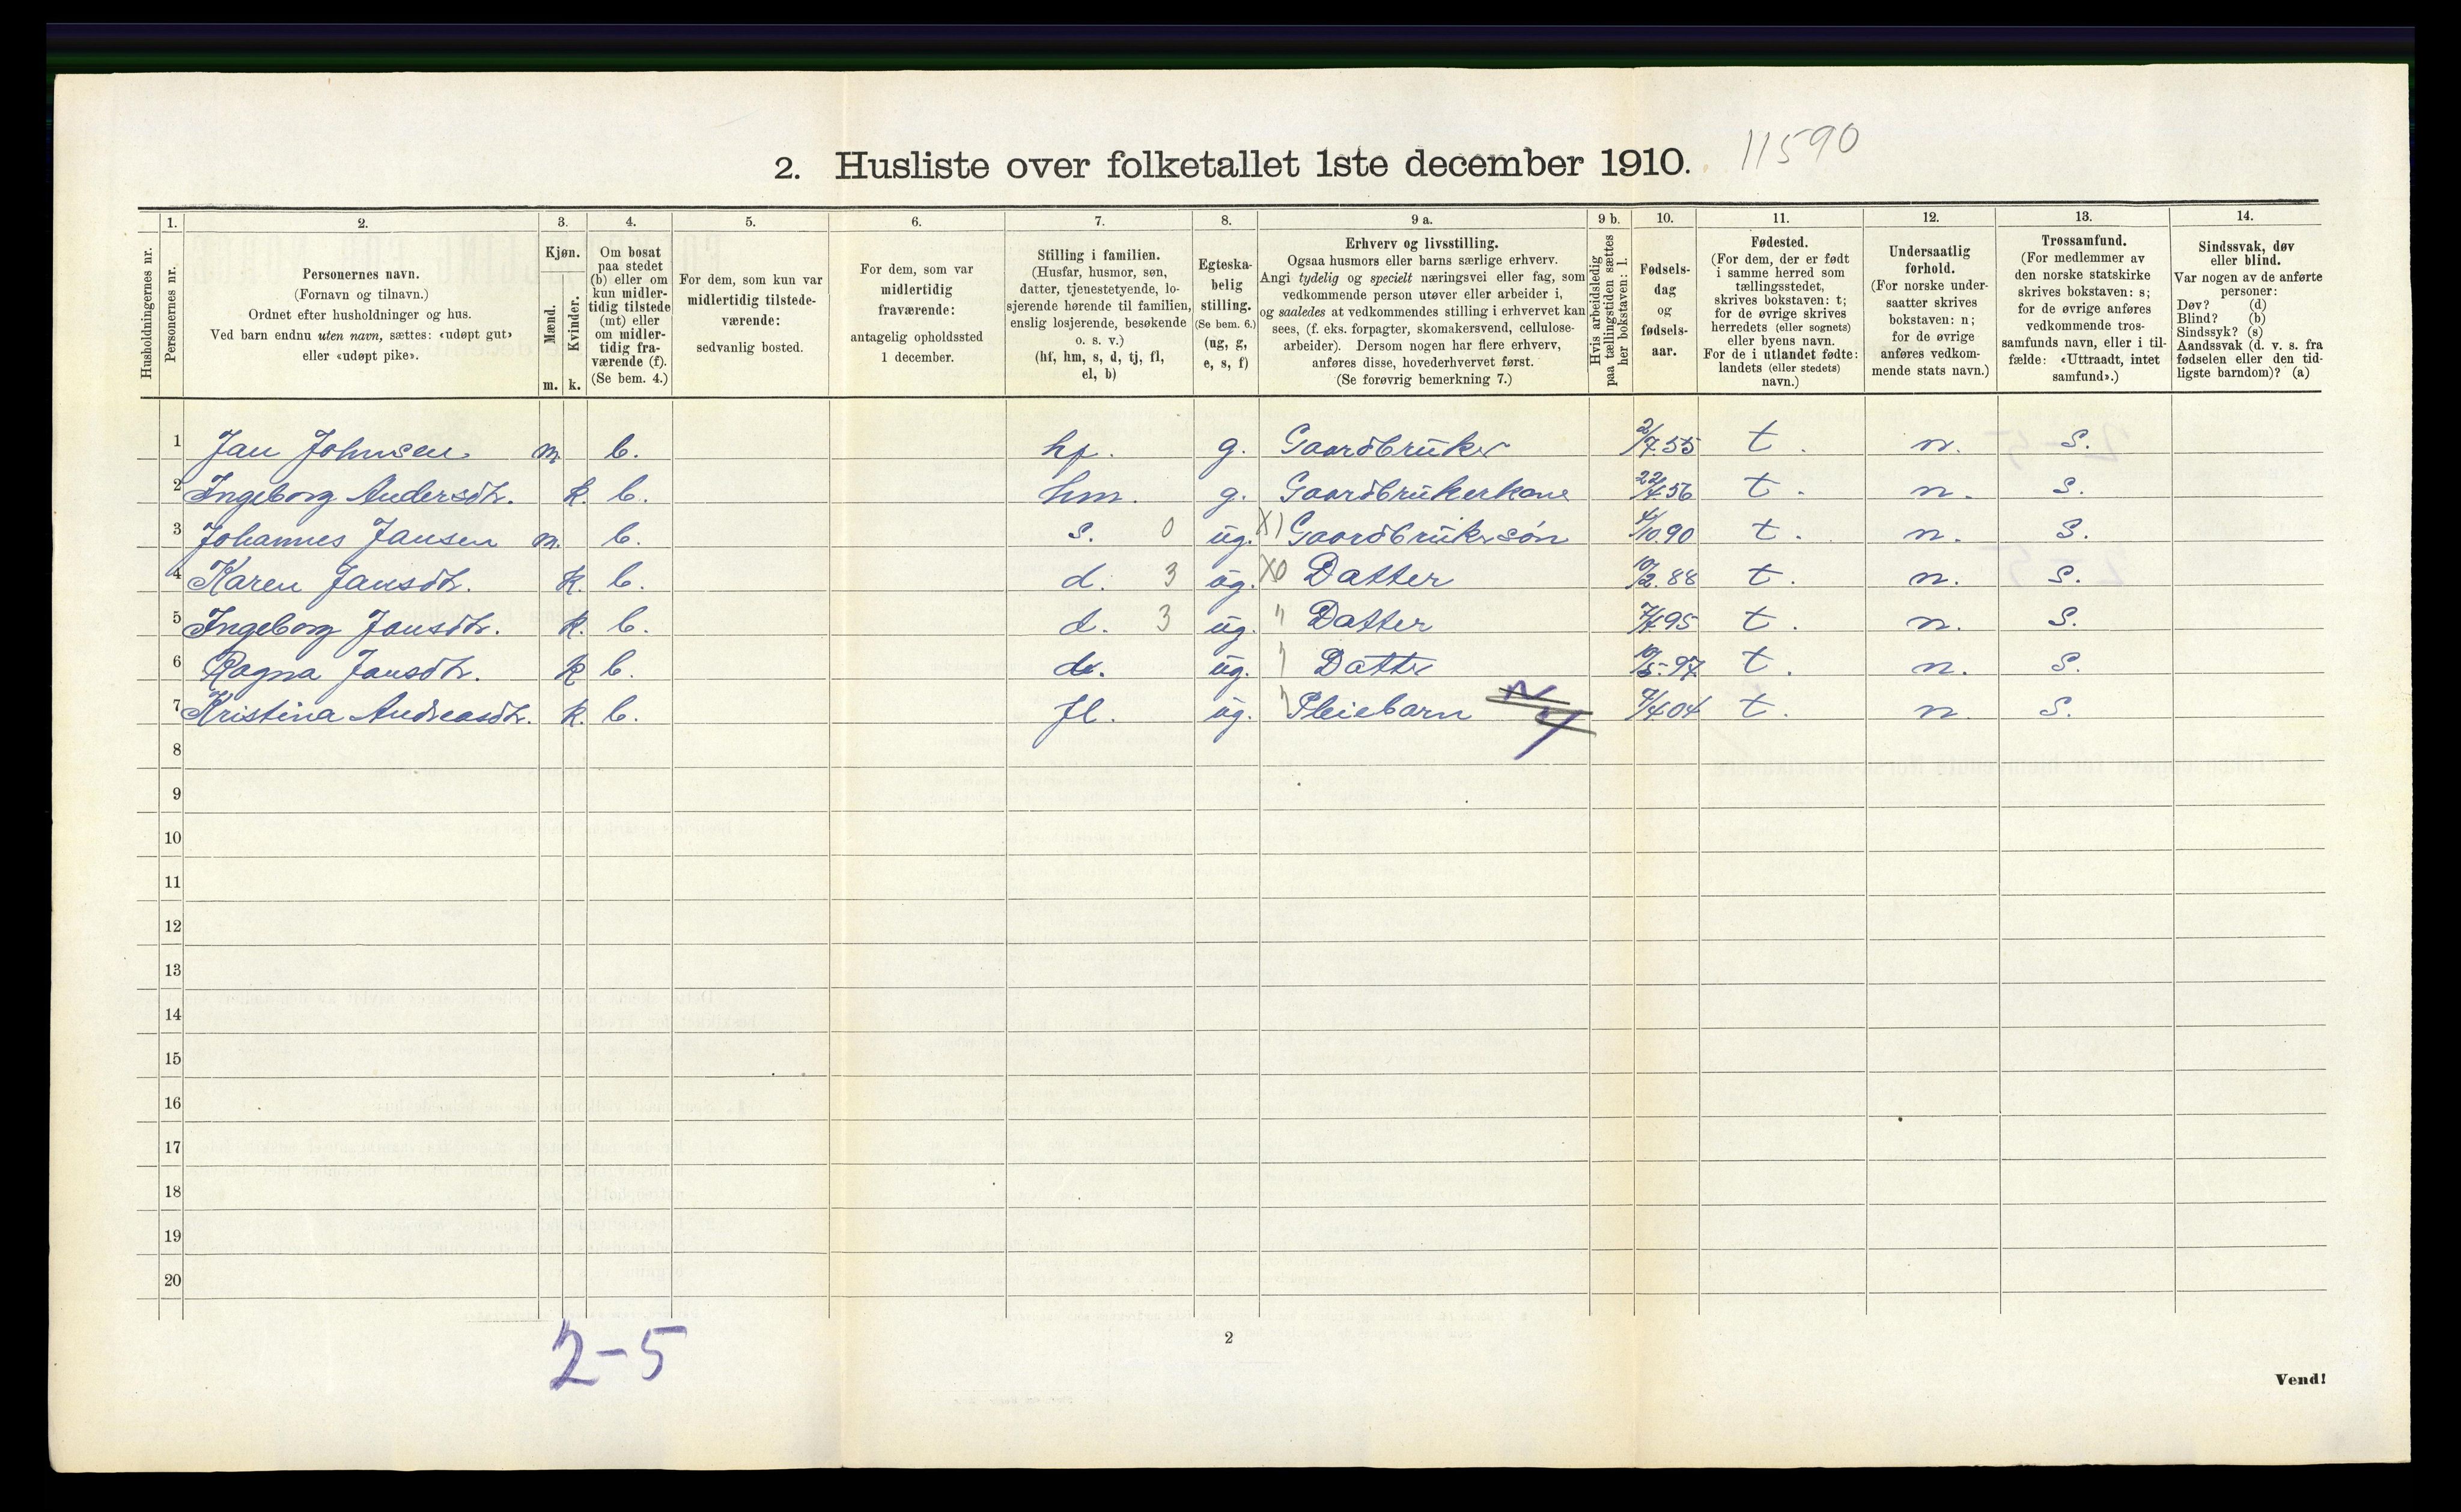 11590
2. Husliste over folketallet 1ste december 1910.
Husholdningernes nr.
1.
Personernes nr.
2.
Personernes navn.
(Fornavn og tilnavn.)
Ordnet efter husholdninger og hus.
Ved barn endnu uten navn, sættes: «udøpt gut»
eller «udøpt pike».
3.
Kjøn.
Mænd.
Kvinder.
m. k.
4.
Om bosat
paa stedet
(b) eller om
kun midler-
tidig tilstede
(mt) eller
om midler-
tidig fra-
værende (f).
(Se bem. 4.)
5.
For dem, som kun var
midlertidig tilstede-
værende:
sedvanlig bosted.
6.
For dem, som var
midlertidig
fraværende:
antagelig opholdssted
1 december.
7.
Stilling i familien.
(Husfar, husmor, søn,
datter, tjenestetyende, lo-
sjerende hørende til familien,
enslig losjerende, besøkende
o. s. v.)
(hf, hm, s, d, tj, fl,
el, b)
8.
Egteska-
belig
stilling.
(Se bem. 6.)
(ug, g,
e, s, f)
9 a.
Erhverv og livsstilling.
Ogsaa husmors eller barns særlige erhverv.
Angi tydelig og specielt næringsvei eller fag, som
vedkommende person utøver eller arbeider i,
og saaledes at vedkommendes stilling i erhvervet kan
sees, (f. eks. forpagter, skomakersvend, cellulose-
arbeider). Dersom nogen har flere erhverv,
anføres disse, hovederhvervet først.
(Se forøvrig bemerkning 7.)
9 b.
Hvis arbeidsledig
paa tællingstiden sættes
her bokstaven: l.
10.
Fødsels-
dag
og
fødsels-
aar.
11.
Fødested.
(For dem, der er født
i samme herred som
tællingsstedet,
skrives bokstaven: t;
for de øvrige skrives
herredets (eller sognets)
eller byens navn.
For de i utlandet fødte:
landets (eller stedets)
navn.)
12.
Undersaatlig
forhold.
(For norske under-
saatter skrives
bokstaven: n;
for de øvrige
anføres vedkom-
mende stats navn.)
13.
Trossamfund.
(For medlemmer av
den norske statskirke
skrives bokstaven: s;
for de øvrige anføres
vedkommende tros-
samfunds navn, eller i til-
fælde: «Uttraadt, intet
samfund».)
14.
Sindssvak, døv
eller blind.
Var nogen av de anførte
personer:
Døv? (d)
Blind? (b)
Sindssyk? (s)
Aandssvak (d. v. s. fra
fødselen eller den tid-
ligste barndom)? (a)
1 Jan Johnsen m. b. hf. g. Gaardbruker 2/7.55 t. n. S.
2 Ingeborg Andersdtr. k. b. hm. g. Gaardbrukerkone t. n. S.
3 Johannes Jansen m. b. s. 0 ug. X) Gaardbrukersøn 4/10.90 t. n. S.
4 Karen Jansdtr. k. b. d. 3 ug. X0 Datter 10/2.88 t. n. S.
5 Ingeborg Jansdtr. k. b. d. 3 ug. " Datter t. n. S.
6 Ragna Jansdtr. k b. d. ug. " Datter 10/5-97 t. n. S.
7 Kristina Andreasdtr. k. b. fl. ug. " Pleiebarn t. n. S.
8
9
10
11
12
13
14
15
16
17
18
19
20
2-5
2
Vend!